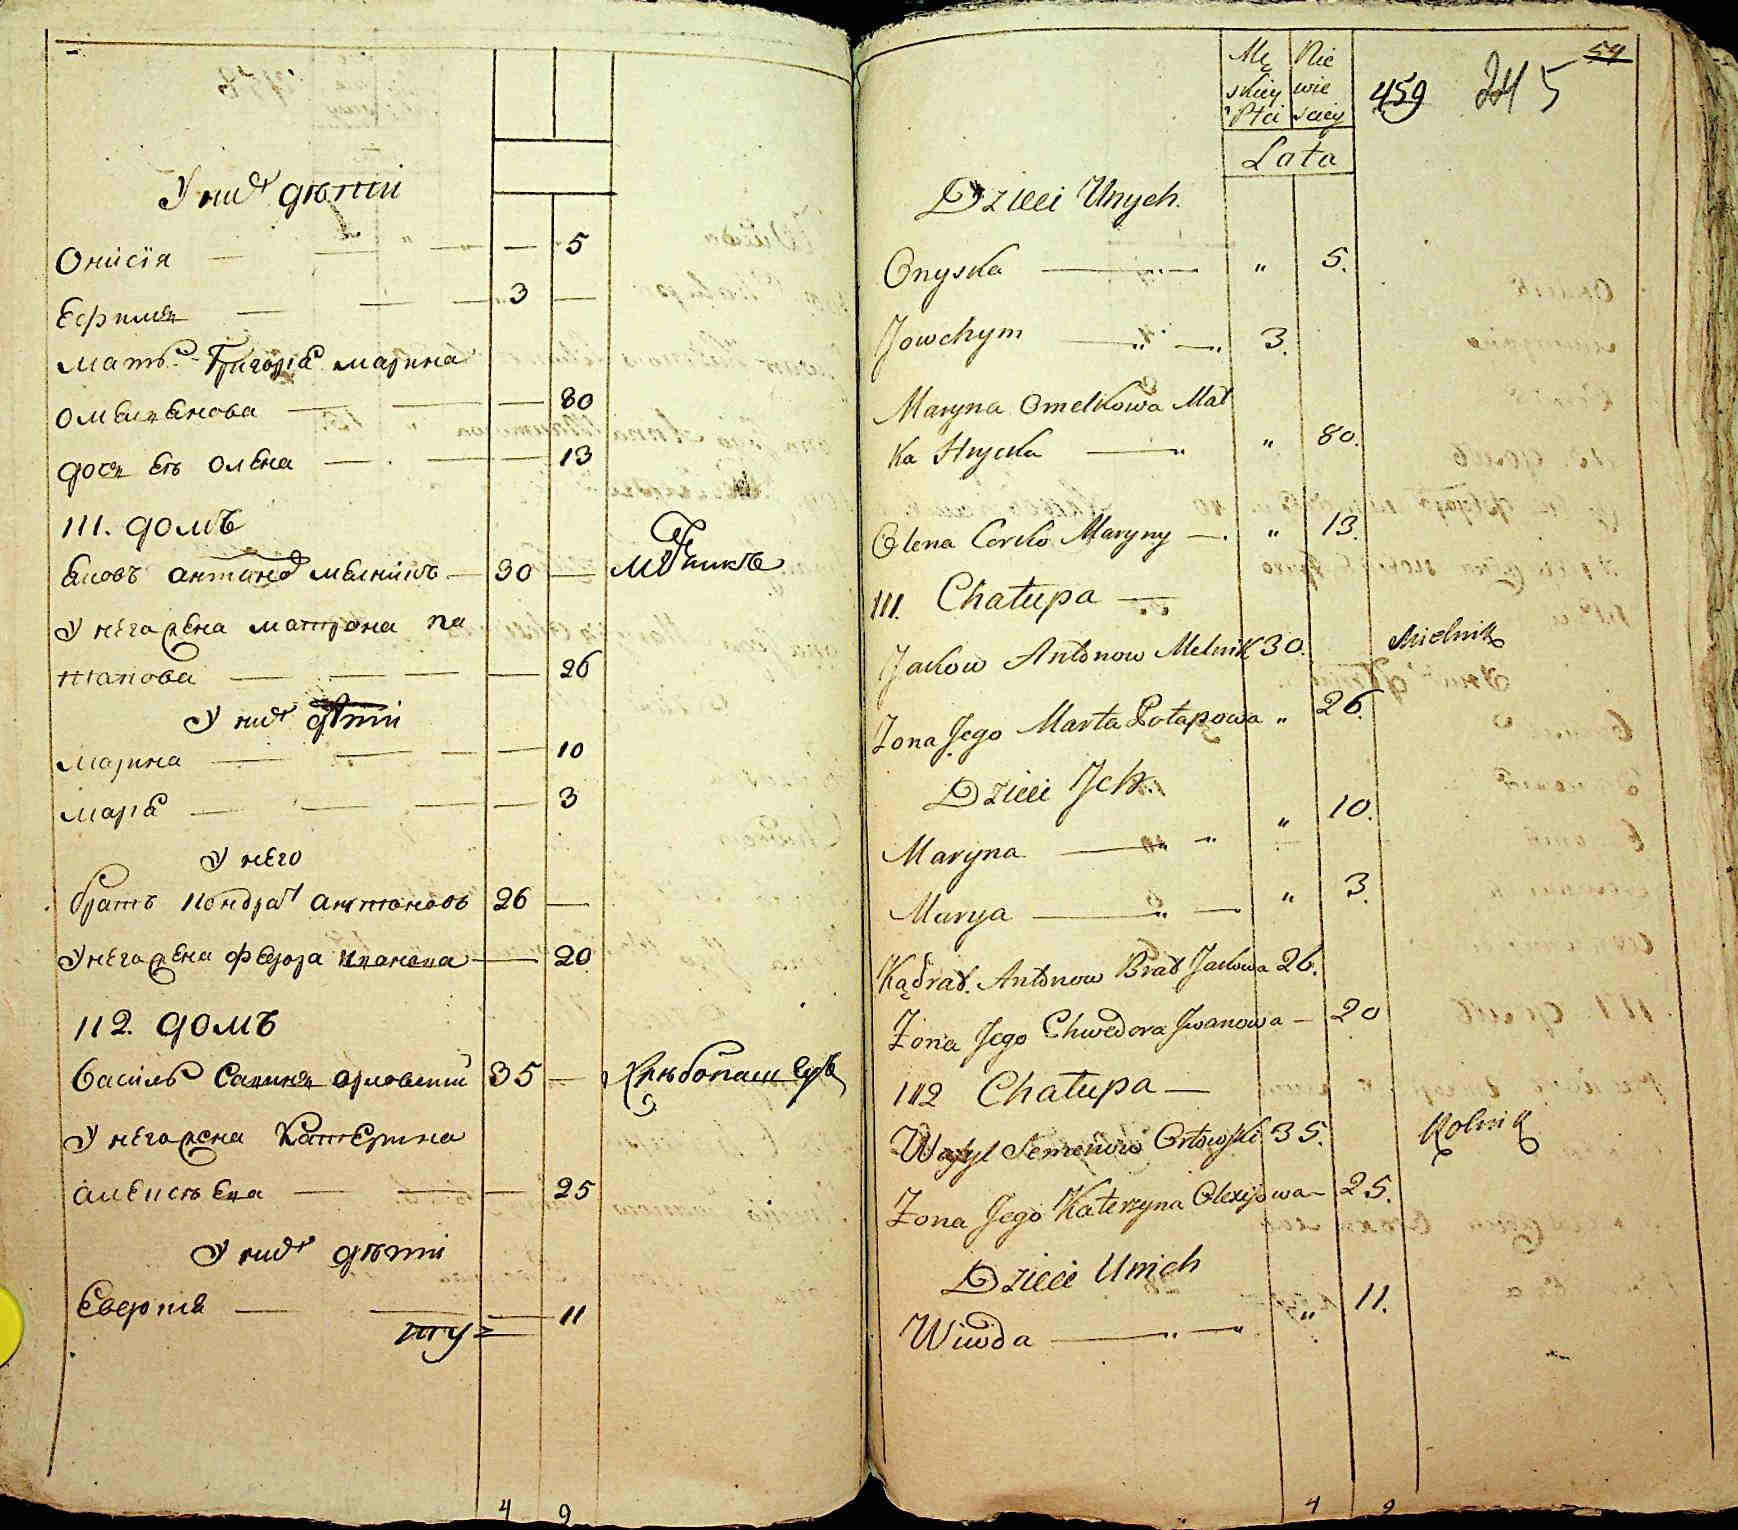 У них дѣти
Онисія — — 5
Ефимъ — 3 —
мать Григорія марина
омелянова — — 80
дочь Еѣ олена — — 13
111. домъ
Яковъ антонов мелникъ — 30 — мѣлникъ
У него жена матрона по
тапова — — 26
У них дѣти
марина — — 10
маря — — 3
У него
братъ кондрат антоновъ 26 —
У него жена федора иванова — 20
112. домъ
василь орловский 35 — хлѣбопашецъ
У него жена катерина
алексѣева — — 25
У них дѣти
Евдокия — — 11
4 9
Mę Nie
skiey wie
Płci sciey
Lata
459 245
54
Dzieci Unych.
Onyska — " 5.
Jowchym — 3.
Maryna Omelkowa Mat
ka Hrycka — " 80.
Olena Corko Maryny — " 13.
111. Chałupa —
Jackow Antonow Melnik 30. Mielnik
Zona Jego Marta Potapowa " 26.
Dzieci Jch.
Maryna — " 10.
Marya — " 3.
Kądrat. Antonow Brat Jackowa 26.
Zona Jego Chwedora Jwanowa — 20
112 Chałupa —
Wasyl Semenow Orłowski 35. Rolnik
Zona Jego Katerzyna Olexijowa — 25.
Dzieci Unich
Wiwda — " 11.
4 9